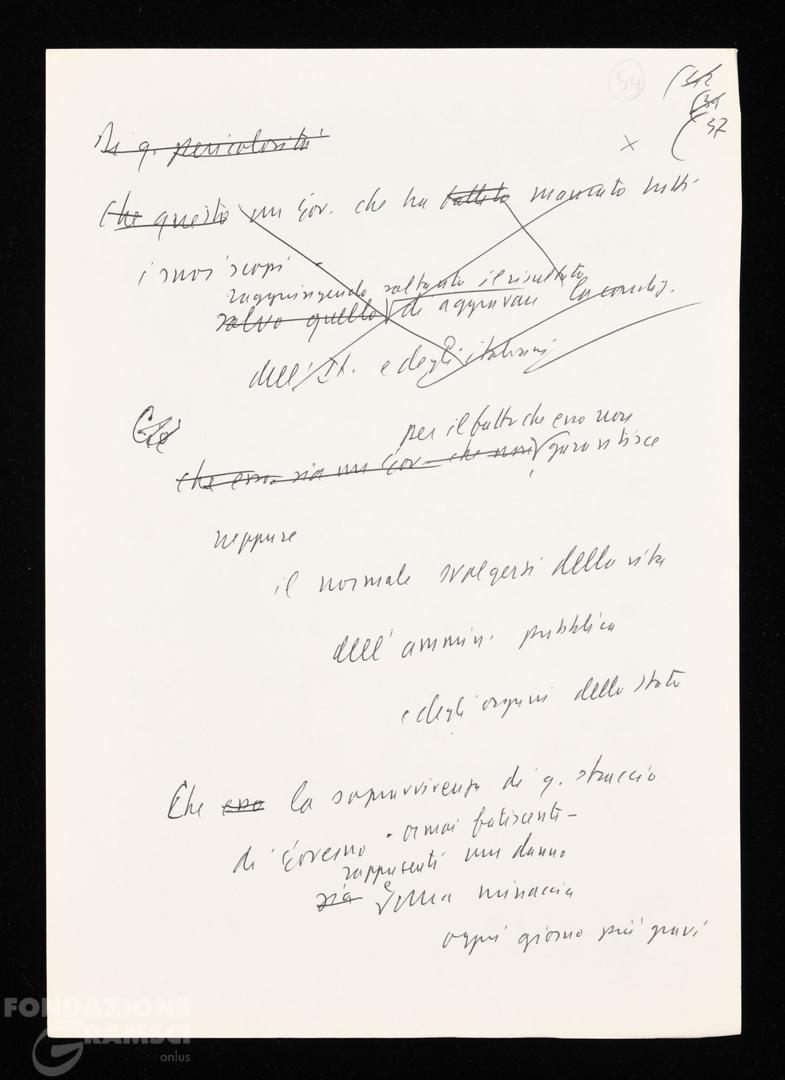 54
(342
(34
(37
x
Di q. pericolosità
Che questo un Gov. che ha fallito mancato tutti
i suoi scopi -
raggiungendo soltanto il risultato
salvo quello di aggravare la condiz.
dell'It. e degli italiani
Che
per il fatto che esso non
che esso sia un Gov. che non garantisce
neppure
il normale svolgersi della vita
dell'ammin. pubblica
e degli organi dello stato
Che esso la sopravvivenza di q. straccio
di Governo - ormai fatiscente -
rappresenti un danno
sia e una minaccia
ogni giorno più gravi
FONDAZIONE
GRAMSCI
onlus